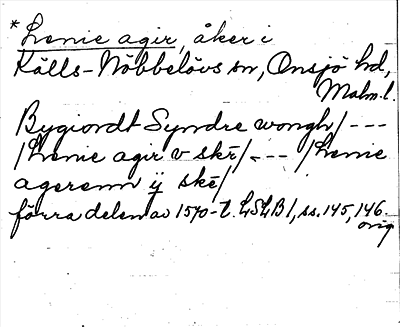 *Lenie agir, åker i
Källs-Nöbbelövs sn, Onsjö hd,
Malm.l.
Bygiordt Syndre wongh/ ---
/Lenie agir v skē/ --- /Lenie
agerenn ÿ skē/
förra delen av 1570-t. LSLB 1, ss. 145, 146.
orig